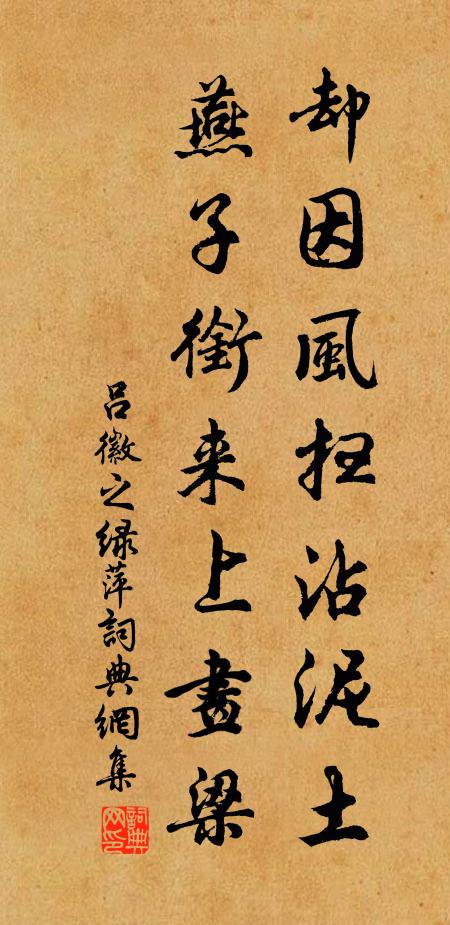 却因風扫沾泥土
燕子銜来上畫梁
吕徽之绿萍詞典網集
詞典網印